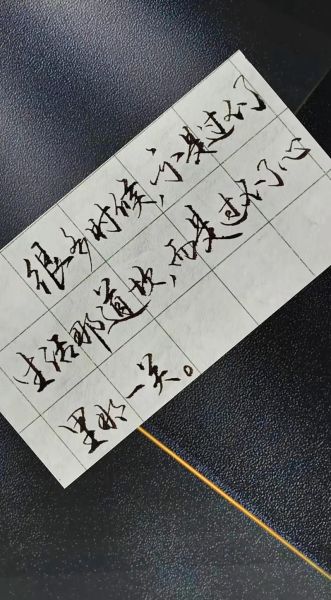 很多时候,不是过不了
生活那道坎,而是过不了心
里那一关。